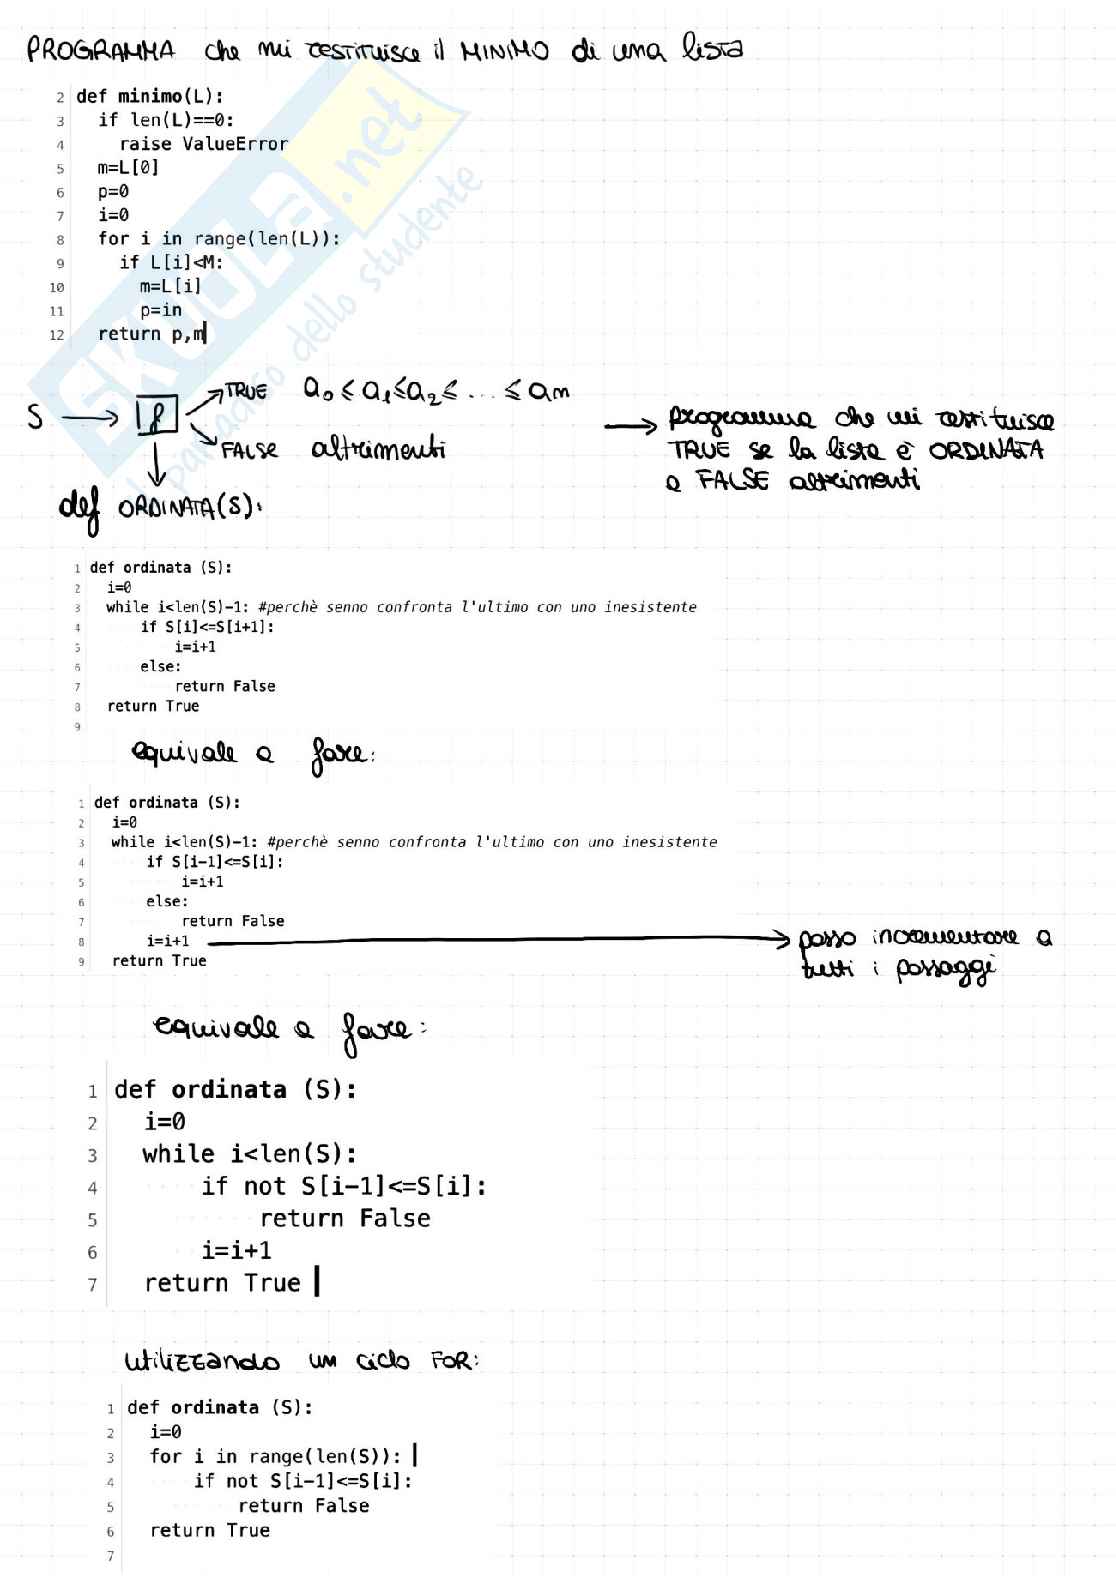 PROGRAMMA che mi restituisce il MINIMO di una lista
2 def minimo(L):
3 if len(L)==0:
4 raise ValueError
5 m=L[0]
6 p=0
7 i=0
8 for i in range(len(L)):
9 if L[i]<M:
10 m=L[i]
11 p=in
12 return p,m
SKUOLA.net
il paradiso dello studente
S → f
TRUE a₀ ≤ a₁ ≤ a₂ ≤ ... ≤ am
FALSE altrimenti
→ programma che mi restituisce
TRUE se la lista è ORDINATA
e FALSE altrimenti
def ORDINATA(S):
1 def ordinata (S):
2 i=0
3 while i<len(S)-1: #perchè senno confronta l'ultimo con uno inesistente
4 if S[i]<=S[i+1]:
5 i=i+1
6 else:
7 return False
8 return True
9
equivale a fare:
1 def ordinata (S):
2 i=0
3 while i<len(S)-1: #perchè senno confronta l'ultimo con uno inesistente
4 if S[i-1]<=S[i]:
5 i=i+1
6 else:
7 return False
8 i=i+1 → posso incrementare a
tutti i passaggi
9 return True
equivale a fare:
1 def ordinata (S):
2 i=0
3 while i<len(S):
4 if not S[i-1]<=S[i]:
5 return False
6 i=i+1
7 return True
utilizzando un ciclo FOR:
1 def ordinata (S):
2 i=0
3 for i in range(len(S)):
4 if not S[i-1]<=S[i]:
5 return False
6 return True
7